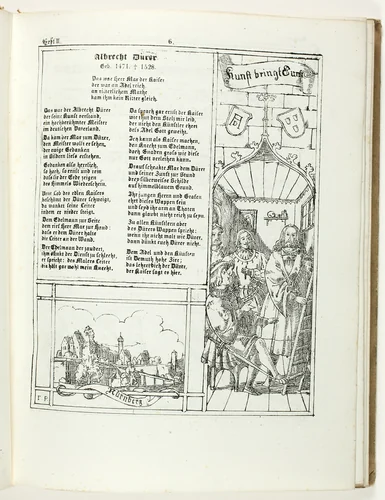 Heft II.
6.
Albrecht Dürer
Geb. 1471. † 1528.
Das was Herr Max der Kaiser
der war an Adel reich
an ritterlichem Muthe
kam ihm kein Ritter gleich.
Das war der Albrecht Dürer
der seine Kunst verstand,
ein hochberühmter Meister
im deutschen Vaterland.
Da kam Herr Max zum Dürer,
den Meister wollt er sehen,
der ewige Gedanken
in Bildern ließ erstehen.
Gedanken also herrlich,
so hoch, so ernst und rein
daß sie der Erde zeigen
des Himmels Wiederschein.
Wie Lob des edlen Kaisers
beschämt der Dürer schweigt,
da wanket seine Leiter
indem er nieder steigt.
Dem Edelmann zur Seite
den rief Herr Max zur Hand
daß er dem Dürer halte
die Leiter an der Wand.
Der Edelmann der zaudert,
ihm dünkt der Dienst zu schlecht,
er spricht: des Malers Leiter
die hält gar wohl mein Knecht.
Da sprach gar ernst der Kaiser
wie thut dein Stolz mir leid,
der nicht den Künstler ehret
deß Adel Gott geweiht.
Ich kann alle machen,
den Knecht zum Edelmann,
doch Gnaden groß wie diese
nur Gott verleihen kann.
Drauf schenkte Max dem Dürer
und seiner Zunft zur Stund
drey silberweisse Schilde
auf himmelblauem Grund.
Ihr jungen Herrn und Grafen
ehrt dieses Wappen fein
und seyd ihr arm an Thaten
dann glaubt nicht reich zu seyn.
In allen Künstlern aber
des Dürers Wappen spricht:
wenn ihr nicht malt wie Dürer,
dann dünkt euch Dürer nicht.
Dem Adel und den Künsten
ist Demuth hohe Zier;
das schreibt der Dürer,
der Kaiser sagt es hier.
Kunst bringt Gunst
Nürnberg
F. P.